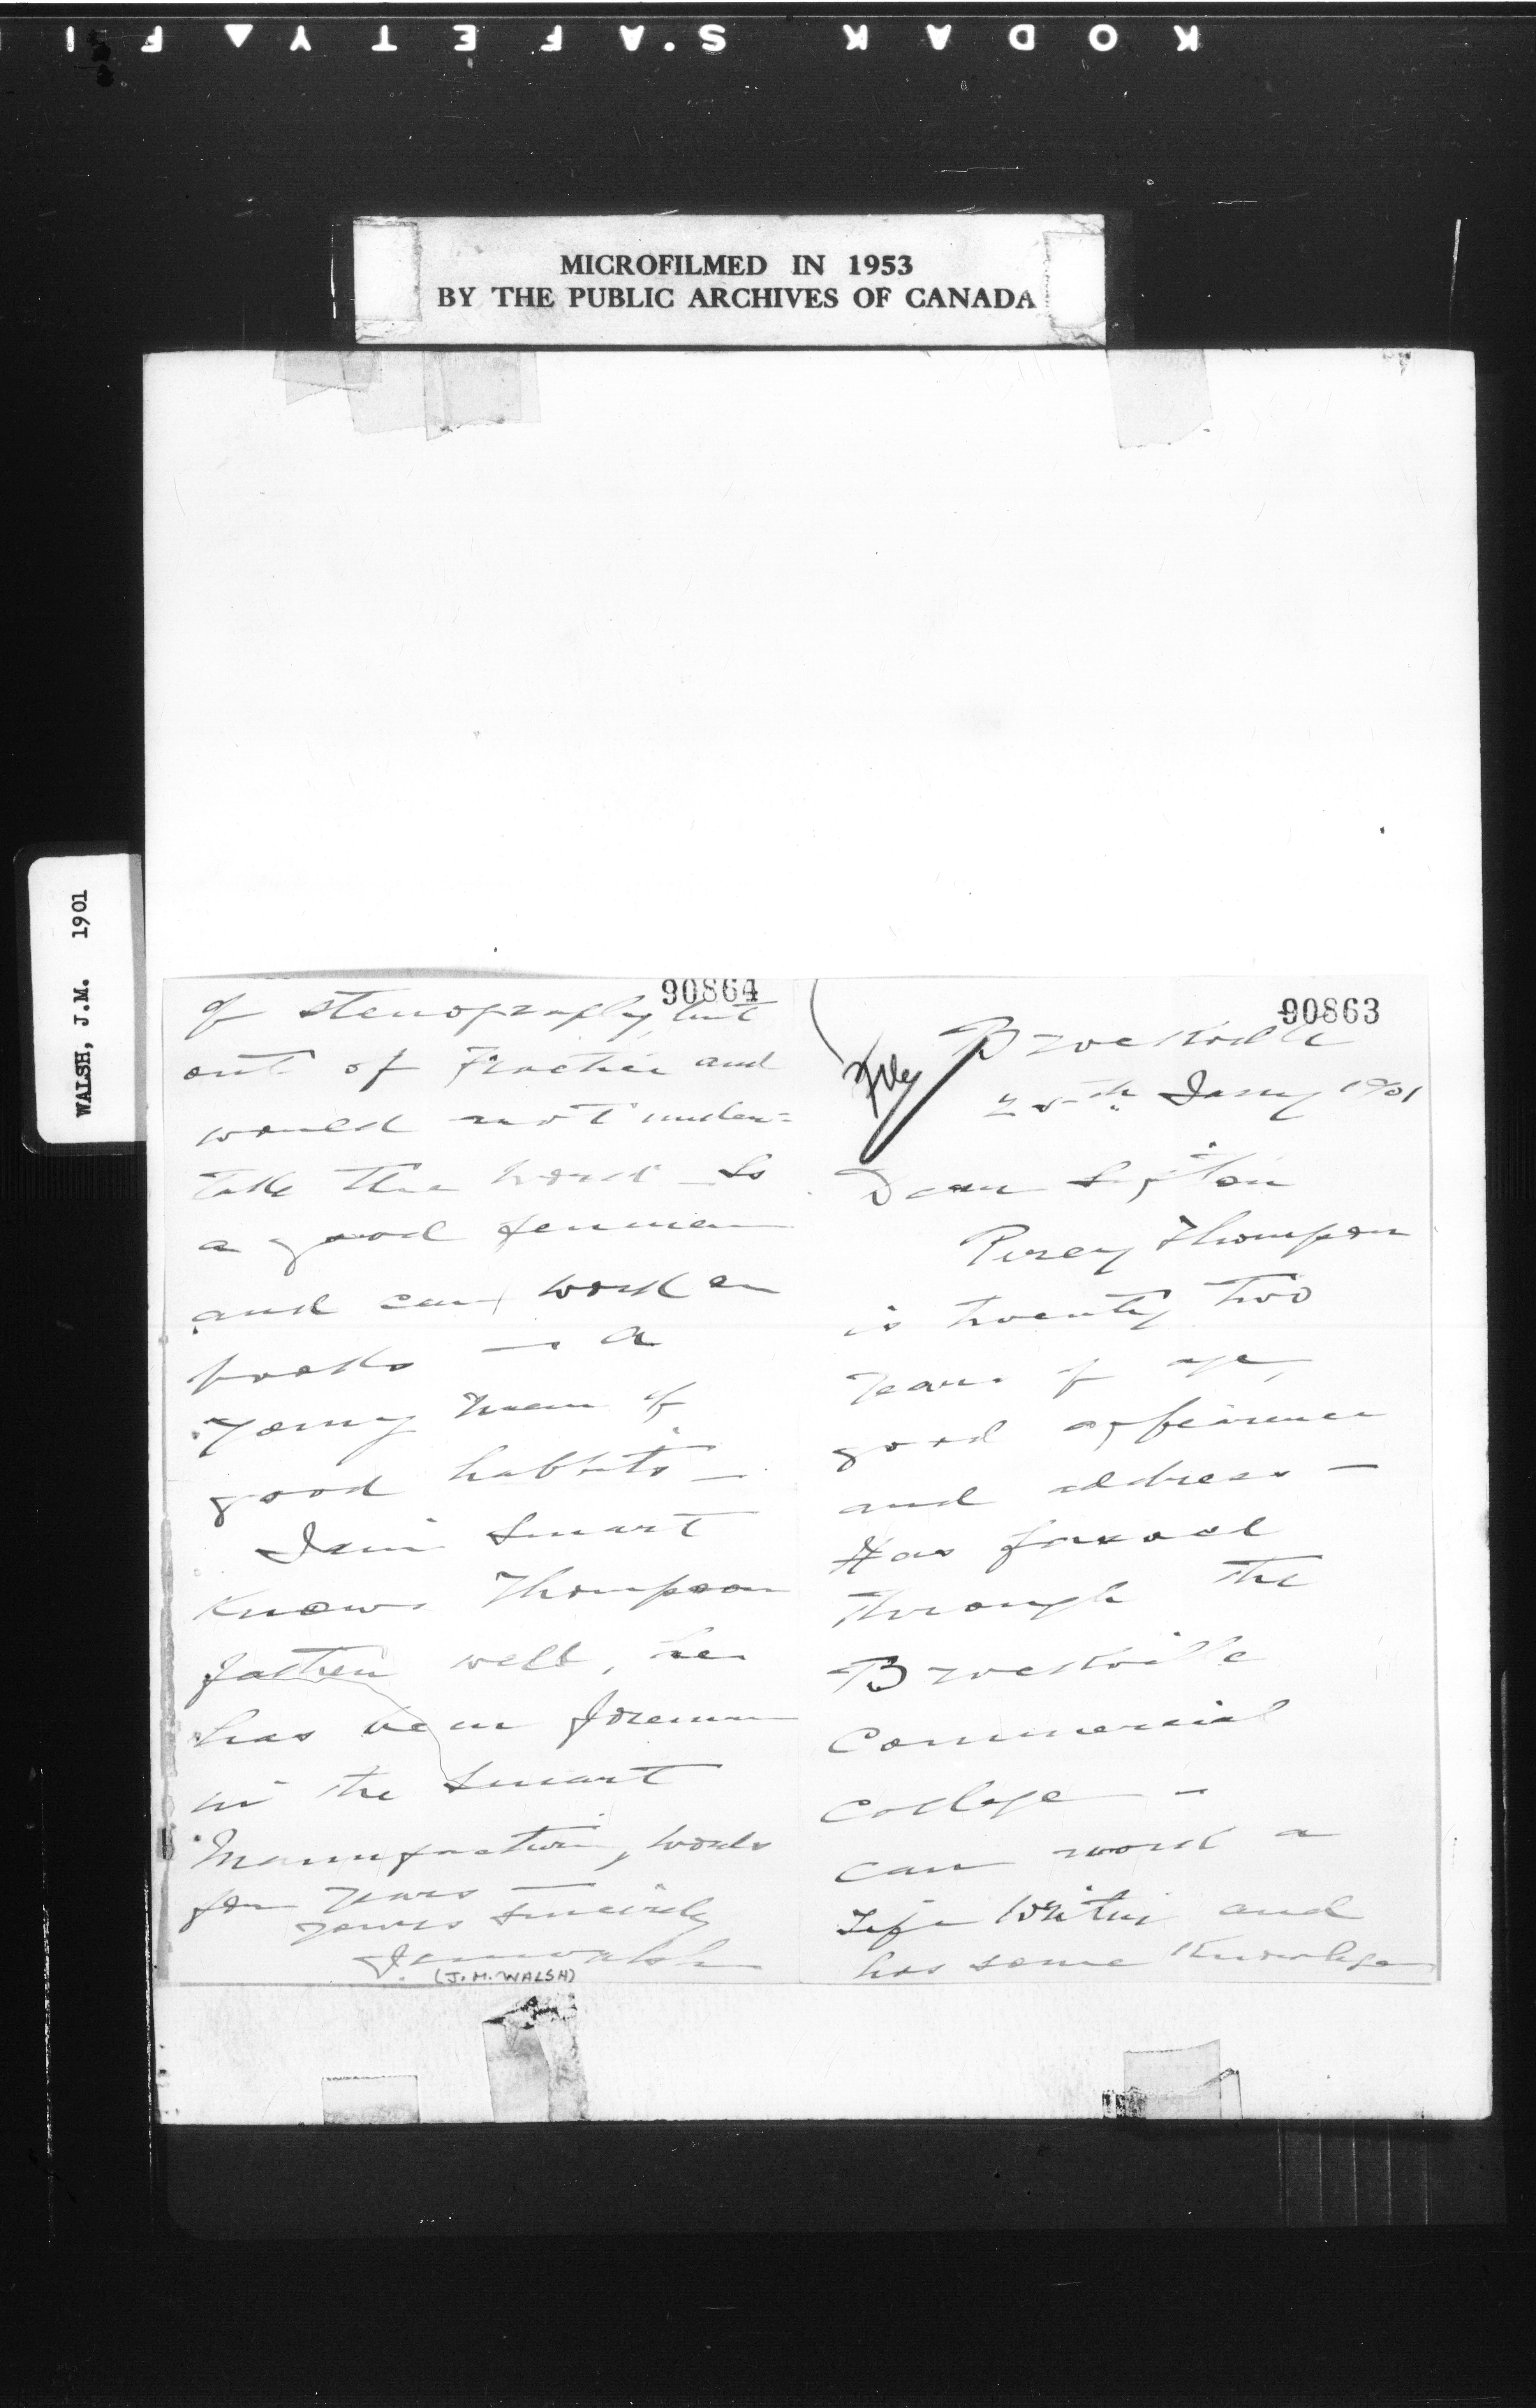 KODAK S'AFETY▲FI
MICROFILMED IN 1953
BY THE PUBLIC ARCHIVES OF CANADA
WALSH, J.M. 1901
90863
Brockville
25th Jany 1901
Dear Sifton
Percy Thompson
is twenty two
years of age,
good appearence
and address —
Has passed
through the
Brockville
Commercial
College —
can work a
Type Writer and
has some Knowledge
90864
of stenography, but
out of practice and
would not under=
take the work — Is
a good penman
and can work on
books — a
young man of
good habbits —
Jim Smart
Knows Thompson
father well, he
has been foreman
in the Smart
Manufacturing works
for years
Yours Sincerely
J M Walsh
(J.M. WALSH)